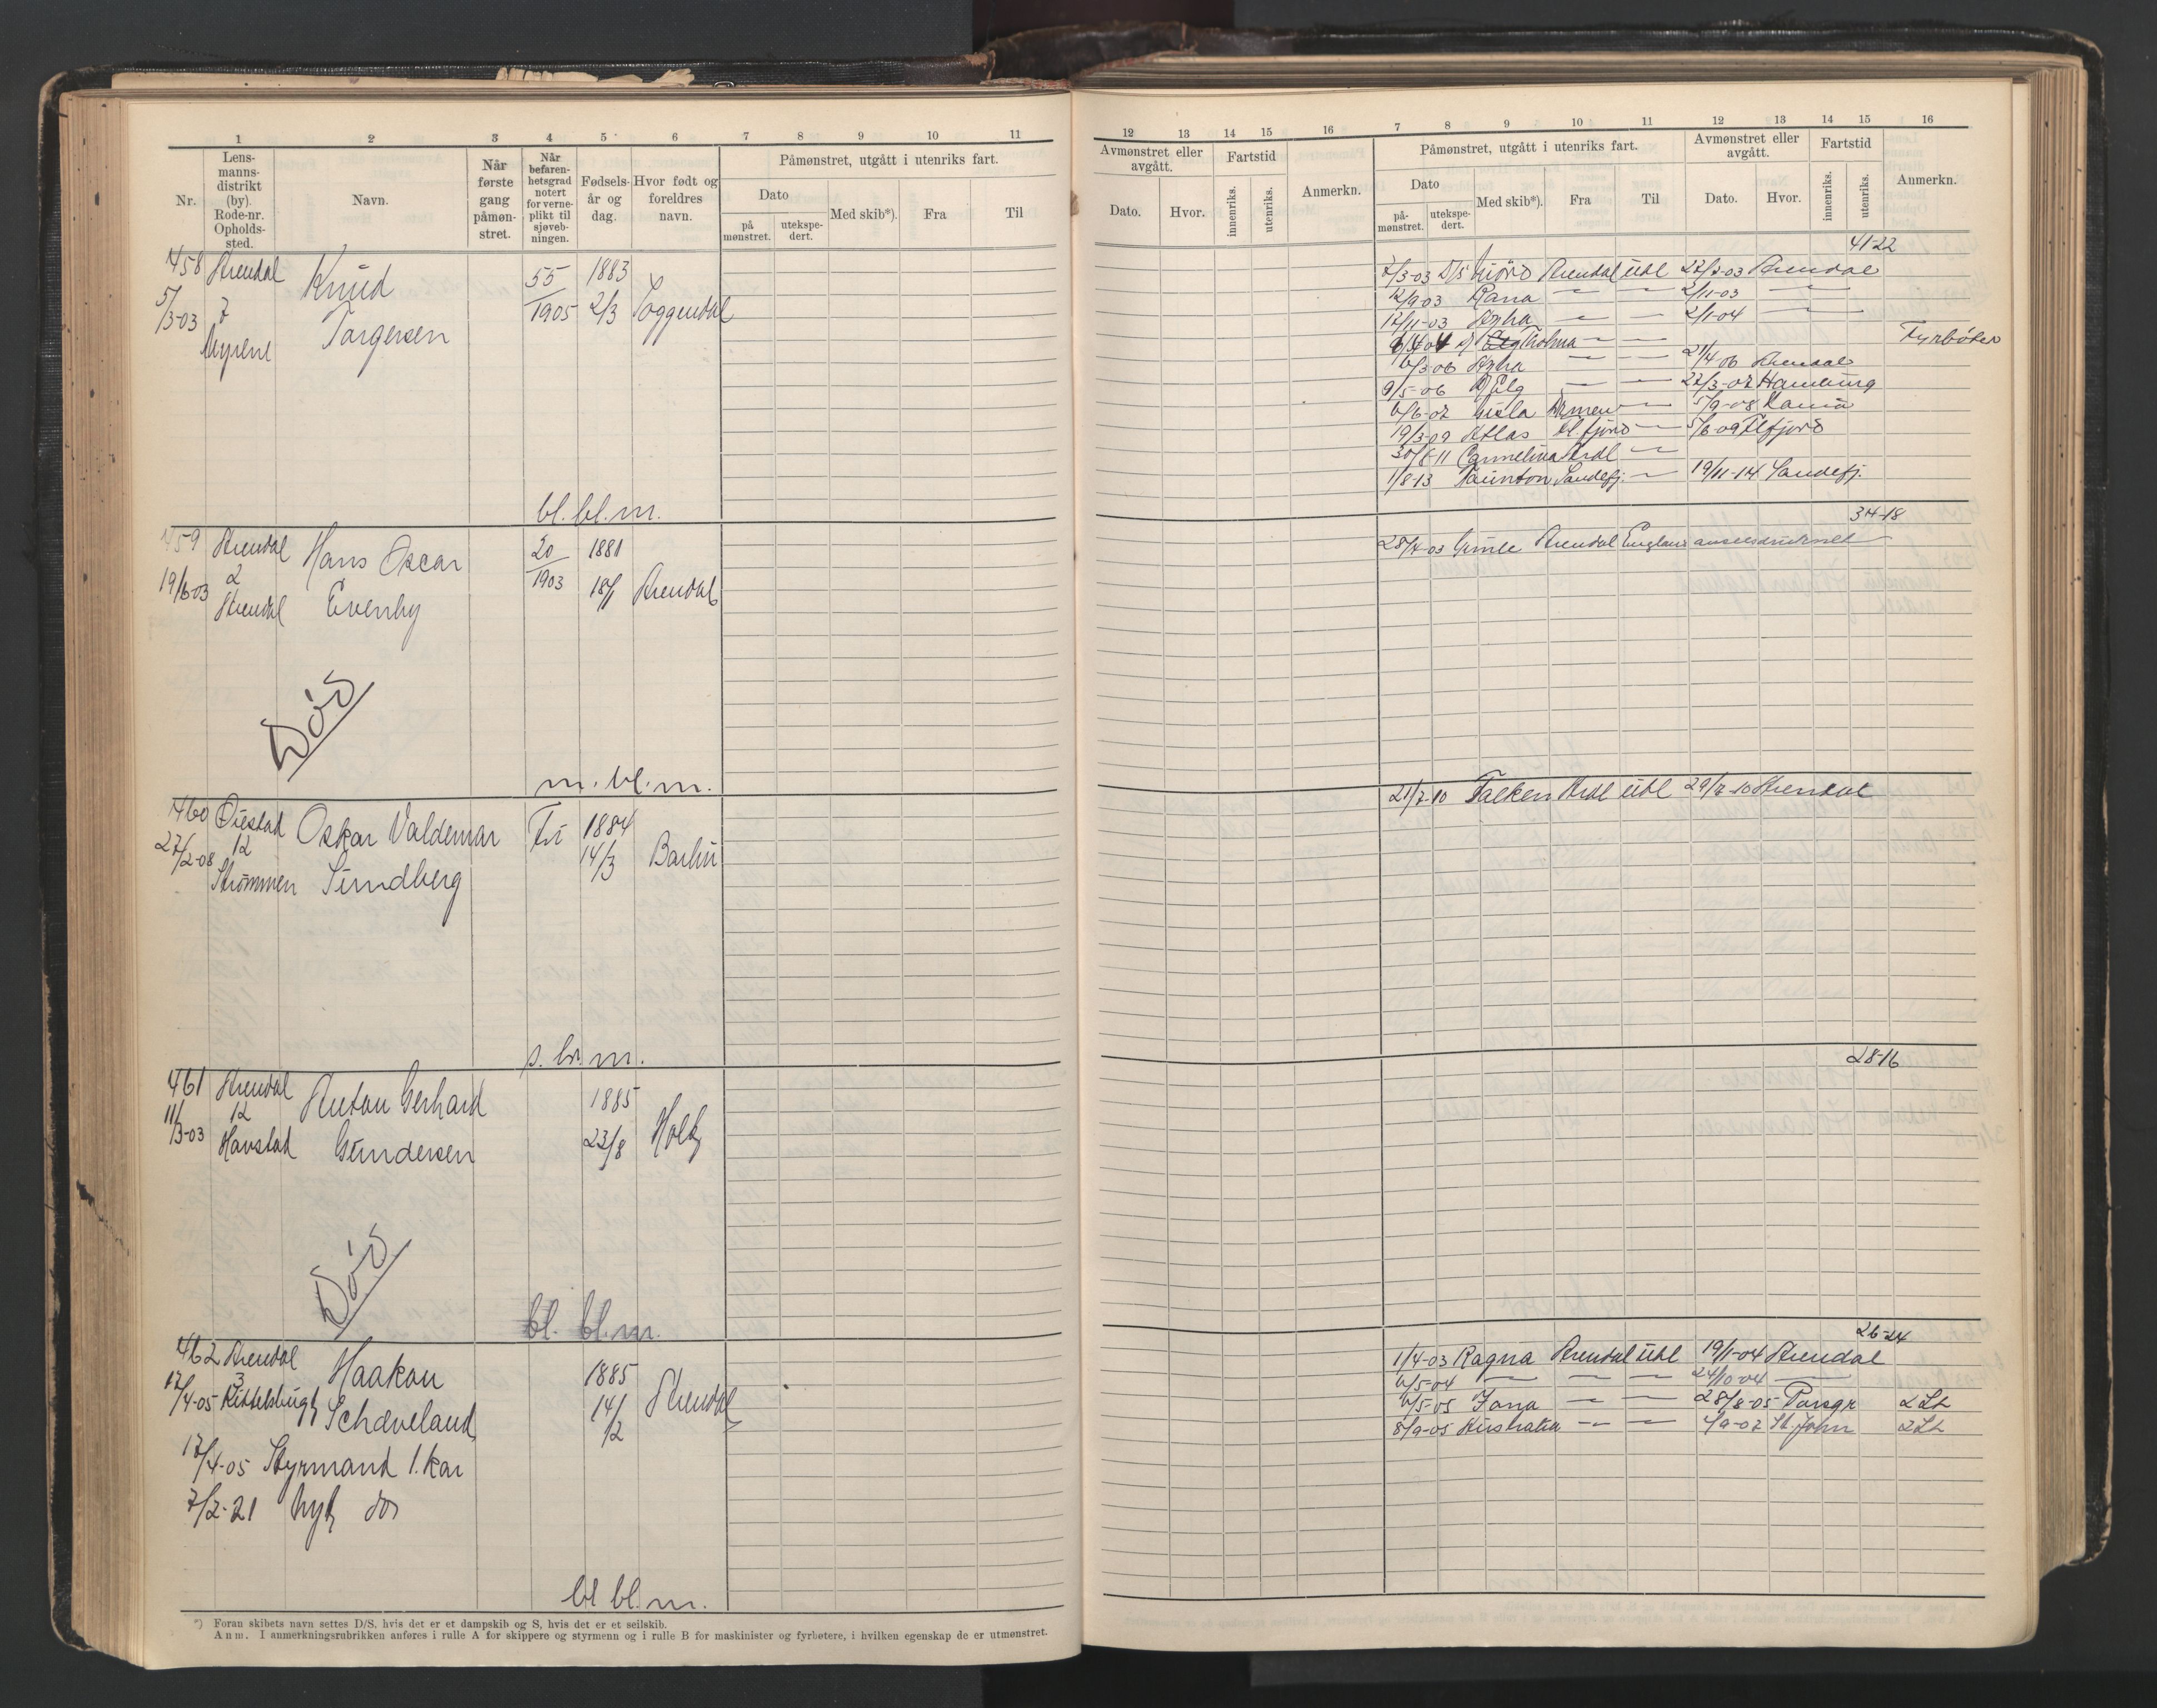 1 2 3 4 5 6 7 8 9 10 11
Nr.
Lens-
manns-
distrikt
(by).
Rode-nr.
Opholds-
sted.
Navn.
Når
første
gang
påmøn-
stret.
Når
befaren-
hetsgrad
notert
for verne-
plikt til
sjøveb-
ningen.
Fødsels-
år og
dag.
Hvor født og
foreldres
navn.
Påmønstret, utgått i utenriks fart.
Dato
på
mønstret.
utekspe-
dert.
Med skib*).
Fra
Til
458 Arendal Knud 55 1883
5/3-03 7 1905 2/3 Soggendal
Myrene Torgersen
bl. bl. m.
459 Arendal Hans Oscar 20 1881
19/6-03 2 1903 18/1 Arendal
Arendal Evenby
Død
m. bl. m.
460 Øiestad Oskar Valdemar Fri 1884
27/2-08 12 14/3 Barbu
Strømmen Sundberg
s. br. m.
461 Arendal Anton Gerhard 1885
11/3-03 12 23/8 Holt
Havstad Gundersen
Død
bl. bl. m.
462 Arendal Haakon 1885
17/4-05 3 Kittelsbugt Schæveland 14/12 Arendal
17/4-05 Styrmand 1. kar
7/2-21 Nyt do
bl bl. m.
*) Foran skibets navn settes D/S, hvis det er et dampskib og S, hvis det er et seilskib.
Anm. I anmerkningsrubrikken anføres i rulle A for skippere og styrmenn og i rulle B for maskinister og fyrbøtere, i hvilken egenskap de er utmønstret.
12 13 14 15 16 7 8 9 10 11 12 13 14 15 16
Avmønstret eller
avgått.
Dato.
Hvor.
Fartstid
innenriks.
utenriks.
Anmerkn.
Påmønstret, utgått i utenriks fart.
Dato
på-
mønstret.
utekspe-
dert.
Med skib*).
Fra
Til
Avmønstret eller
avgått.
Dato.
Hvor.
Fartstid
innenriks.
utenriks.
Anmerkn.
41-22
7/3-03 D/S Njörd Arendal utl 27/8-03 Arendal
12/9-03 Rana — — 2/11-03 —
17/11-03 Agha — — 2/1-04 —
Tholma — — Fyrbøter
6/3-06 Agha — — 21/4 06 Arendal
9/5-06 Elg — — 27/3-07 Hamburg
6/6-07 Gisla — 5/9-08
19/3-09 Atlas — 5/6-09
30/8-11 Carmelina Ardl —
1/8-13 Taunton Sandefj. — 19/11-14 Sandefj.
34-18
28/4-03 Gimle Arendal England
21/7-10 Falken Ardl utl 29/7-10 Arendal
28-16
26-24
1/4-03 Ragna Arendal utl 19/1-04 Arendal
6/5-04 — — — 24/10-04 —
6/5-05 Fana — — 28/8-05 Porsgr 2 St
8/9-05 Australia — — 4/9-07 St John 2 St